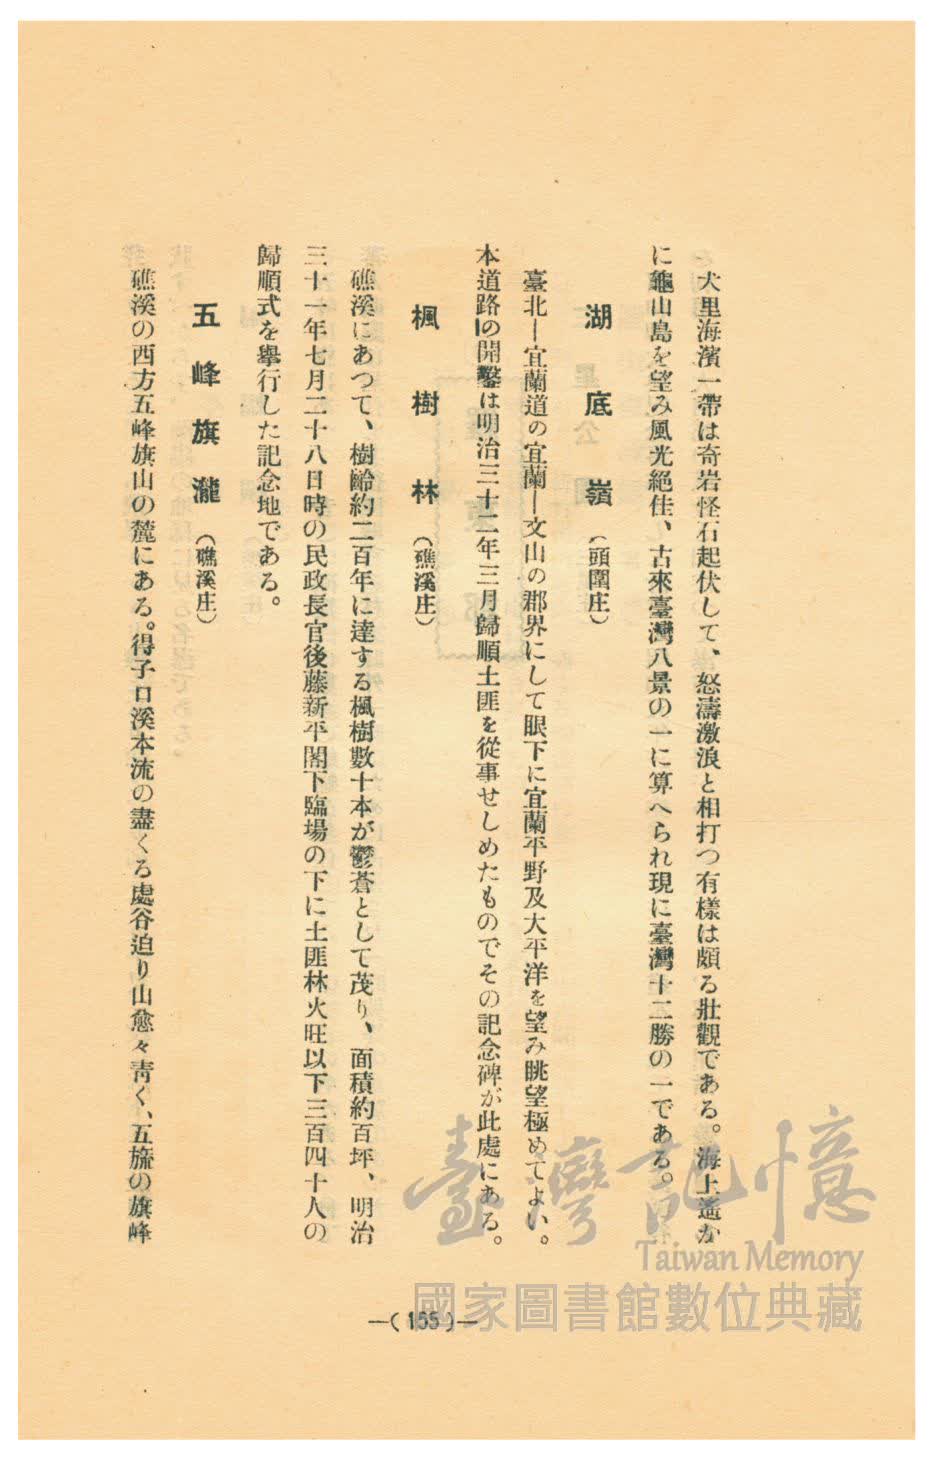 大里海濱一帶は奇岩怪石起伏して、怒濤激浪と相打つ有樣は頗る壯觀である。海上遙か
に龜山島を望み風光絕佳、古來臺灣八景の一に算へられ現に臺灣十二勝の一である。
湖底嶺（頭圍庄）
臺北―宜蘭道の宜蘭―文山の郡界にして眼下に宜蘭平野及大平洋を望み眺望極めてよい。
本道路の開鑿は明治三十二年三月歸順土匪を從事せしめたものでその記念碑が此處にある。
楓樹林（礁溪庄）
礁溪にあつて、樹齡約二百年に達する楓樹數十本が鬱蒼として茂り、面積約百坪、明治
三十一年七月二十八日時の民政長官後藤新平閣下臨場の下に土匪林火旺以下三百四十人の
歸順式を擧行した記念地である。
五峰旗瀧（礁溪庄）
礁溪の西方五峰旗山の麓にある。得子口溪本流の盡くる處谷迫り山愈々靑く、五旒の旗峰
―(155)―
臺灣記憶
Taiwan Memory
國家圖書館數位典藏